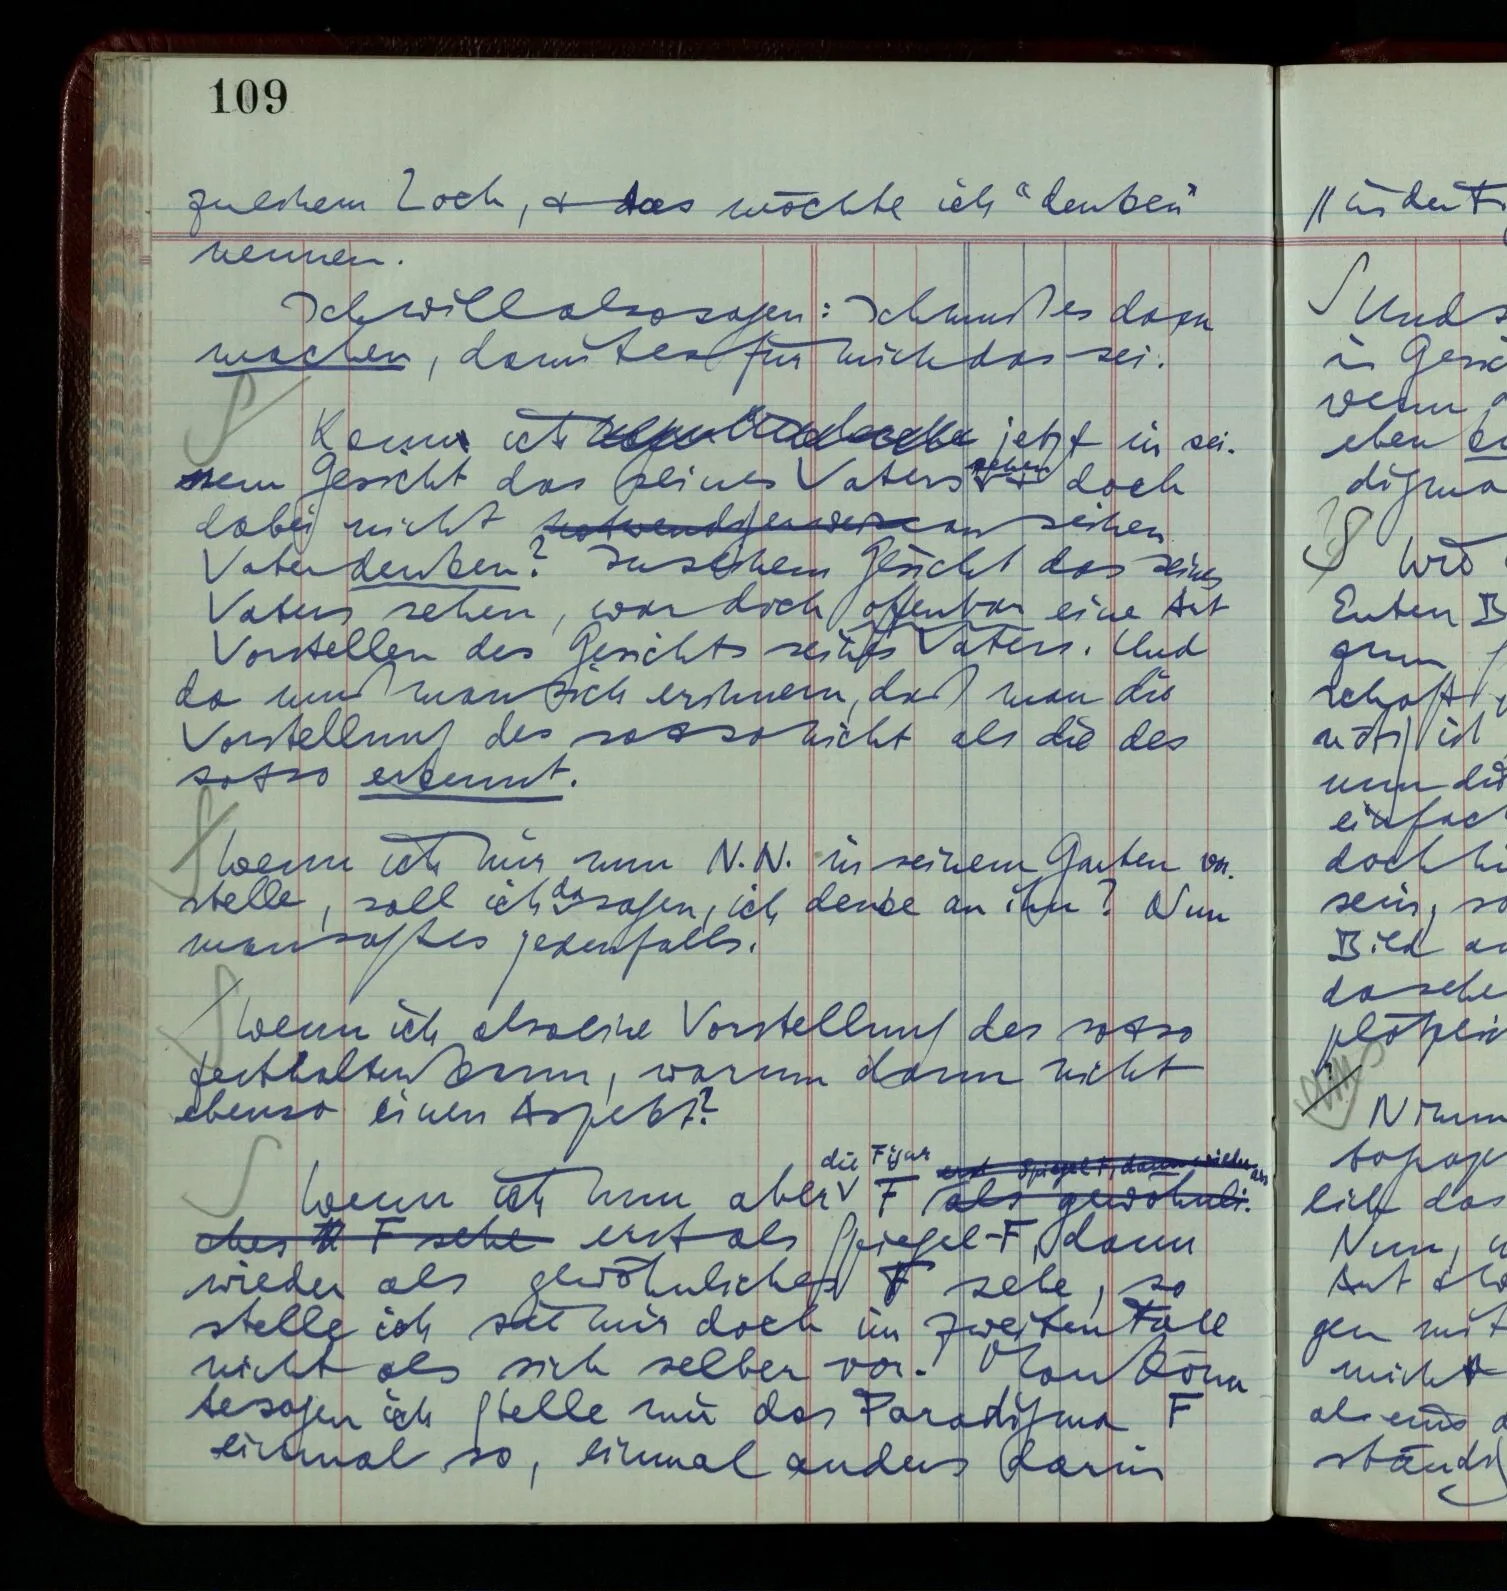 109
zu einem Loch, & das möchte ich "denken"
nennen.
Ich will also sagen: Ich muß es dazu
machen, damit es für mich das sei.
Kann ich jetzt in sei-
nem Gesicht das seines Vaters sehen & doch
dabei nicht notwendigerweise an seinen
Vater denken? In seinem Gesicht das seines
Vaters sehen, war doch offenbar eine Art
Vorstellen des Gesichts seines Vaters. Und
da muß man sich erinnern, daß man die
Vorstellung des so & so nicht als die des
so & so erkennt.
Wenn ich mir nun N.N. in seinem Garten vor-
stelle, soll ich da sagen, ich denke an ihn? Nun
man sagt es jedenfalls.
Wenn ich also eine Vorstellung des so & so
festhalten kann, warum dann nicht
ebenso einen Aspekt?
die Figur erst Spiegel F, dann wieder als
Wenn ich nun aber F als gewöhnli-
ches F sehe erst als Spiegel-F, dann
wieder als gewöhnliches F sehe, so
stelle ich sie mir doch im zweiten Falle
nicht als sich selber vor. Man könn-
te sagen ich stelle mir das Paradigma F
einmal so, einmal anders darin
// in der F
Und s
in Gesic
wenn
eben
digma
Wird
Enten B
schaft
nötig ist
nun die
einfach
doch hi
sein, so
Bild an
da sehe
plötzlic
Nimm
topogr
lich das
Nun,
Art
gen mit
nicht
als eins
ständ